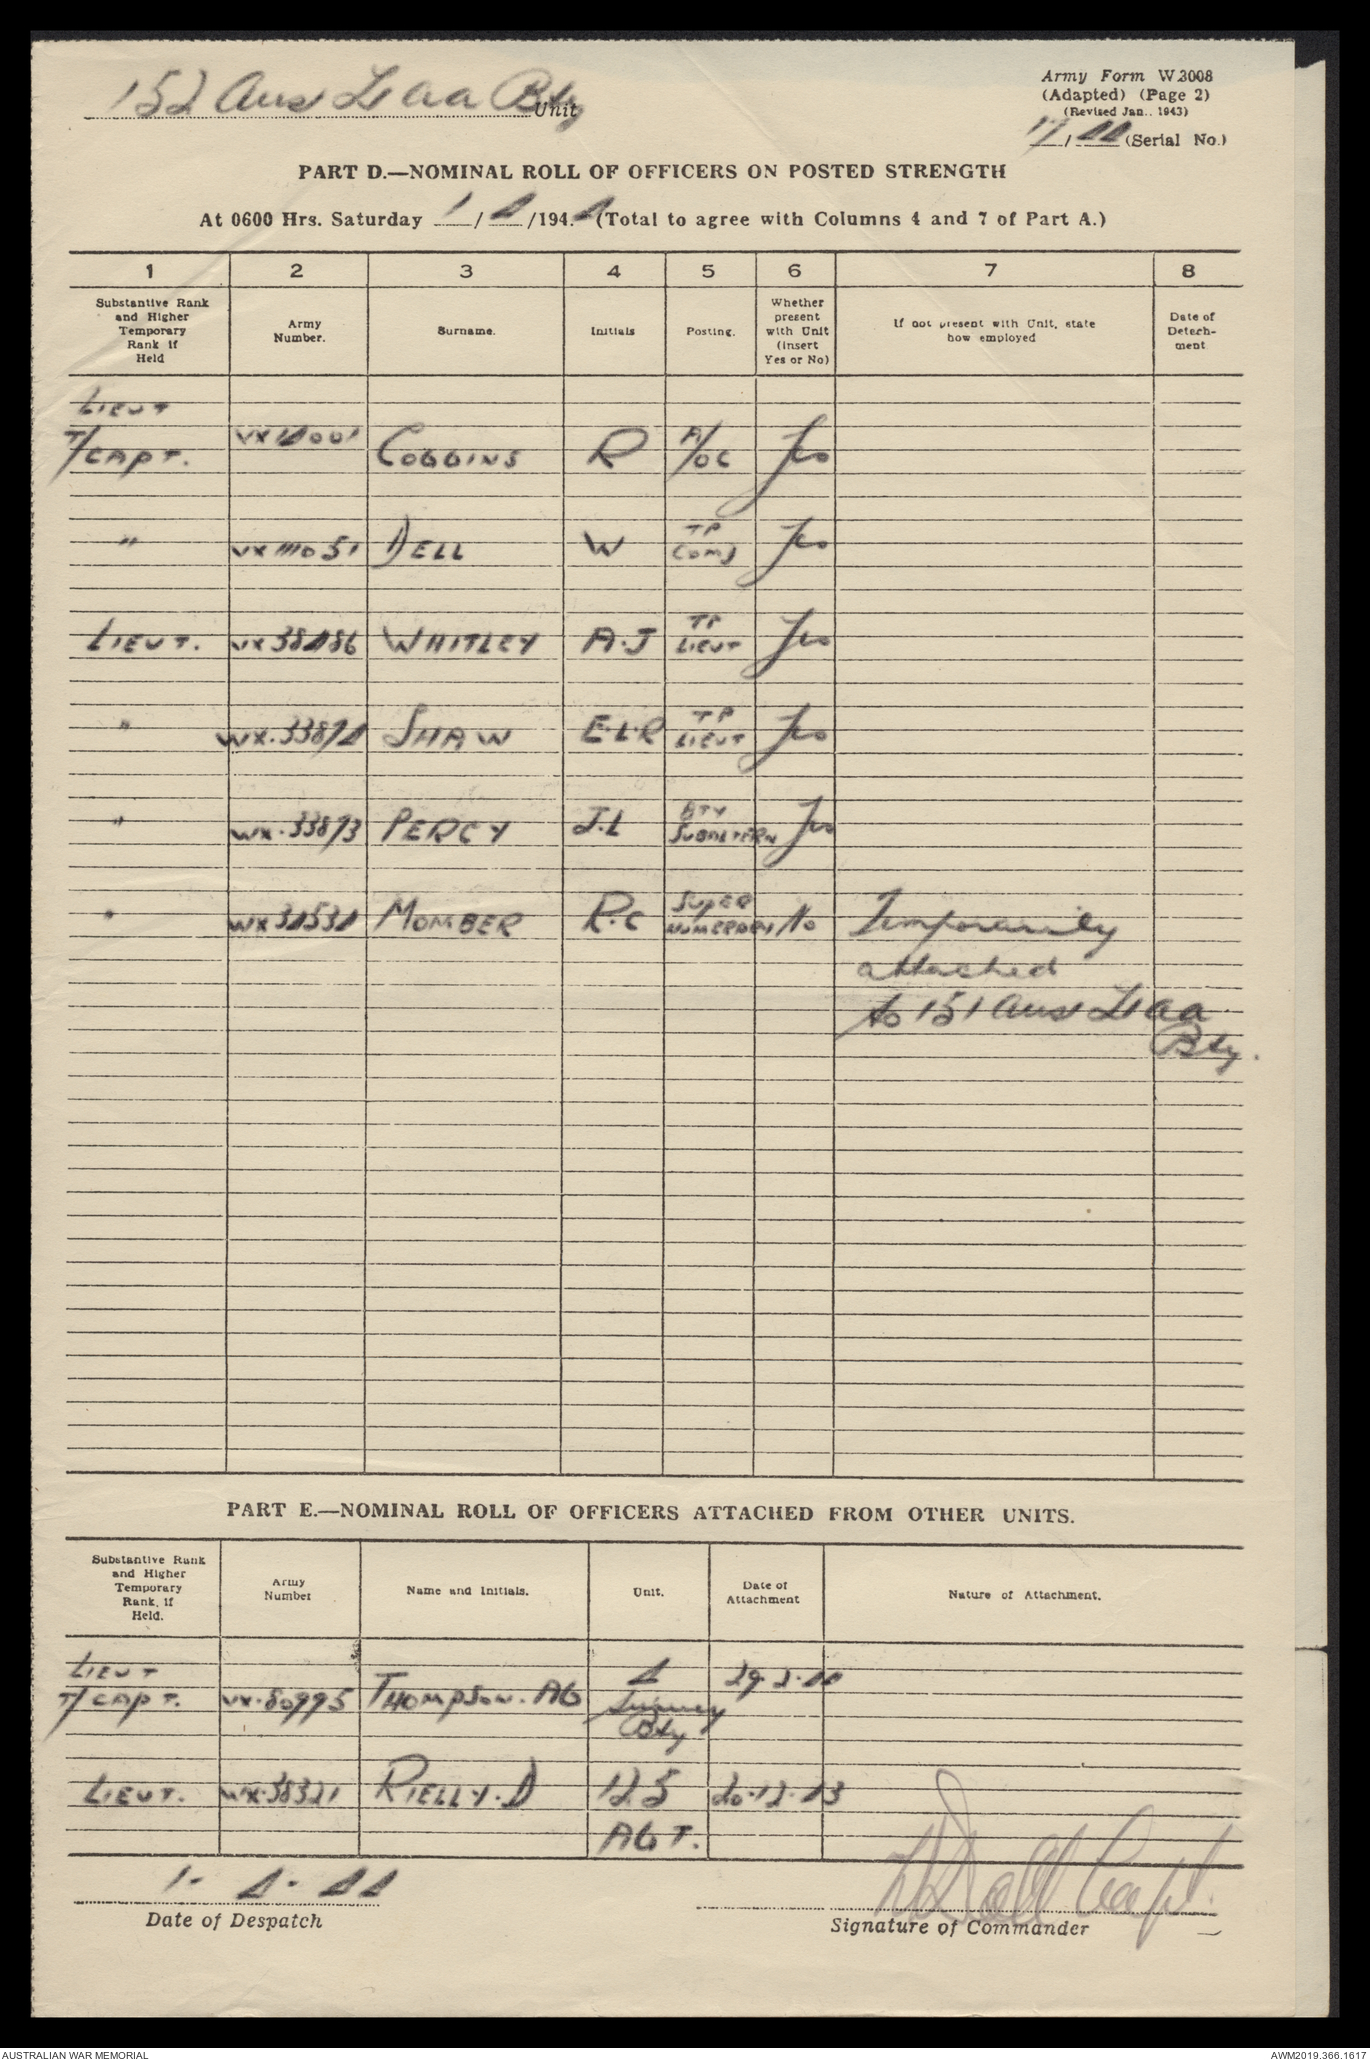 152 Aus Lt aa Bty Unit
Army Form W.3008
(Adapted) (Page 2)
(Revised Jan., 1943)
17/44 (Serial No.)
PART D.—NOMINAL ROLL OF OFFICERS ON POSTED STRENGTH
At 0600 Hrs. Saturday 1/4/1944 (Total to agree with Columns 4 and 7 of Part A.)
1 2 3 4 5 6 7 8
Substantive Rank and Higher Temporary Rank if Held
Army Number.
Surname.
Initials
Posting.
Whether present with Unit (Insert Yes or No)
If not present with Unit, state how employed
Date of Detachment
LIEUT
T/CAPT. VX14001 COGGINS R A/OC Yes
" VX111051 DELL W TP COMD Yes
LIEUT. VX38486 WHITLEY A.J TP LIEUT Yes
" WX.33874 SHAW E.L.R TP LIEUT Yes
" WX.33873 PERCY J.L BTY SUBALTERN Yes
" WX34534 MOMBER R.C SUPER NUMERARY No Temporarily
attached
to 151 Aus Lt aa
Bty.
PART E.—NOMINAL ROLL OF OFFICERS ATTACHED FROM OTHER UNITS.
Substantive Rank and Higher Temporary Rank, if Held.
Army Number
Name and Initials.
Unit.
Date of Attachment
Nature of Attachment.
LIEUT
T/CAPT. VX.80995 THOMPSON. AG 4 Survey Bty 29.2.44
LIEUT. WX.38321 RIELLY. D 125 20.12.43
AGT.
1-4-44
Date of Despatch
W Dell Capt.
Signature of Commander
AUSTRALIAN WAR MEMORIAL
AWM2019.366.1617